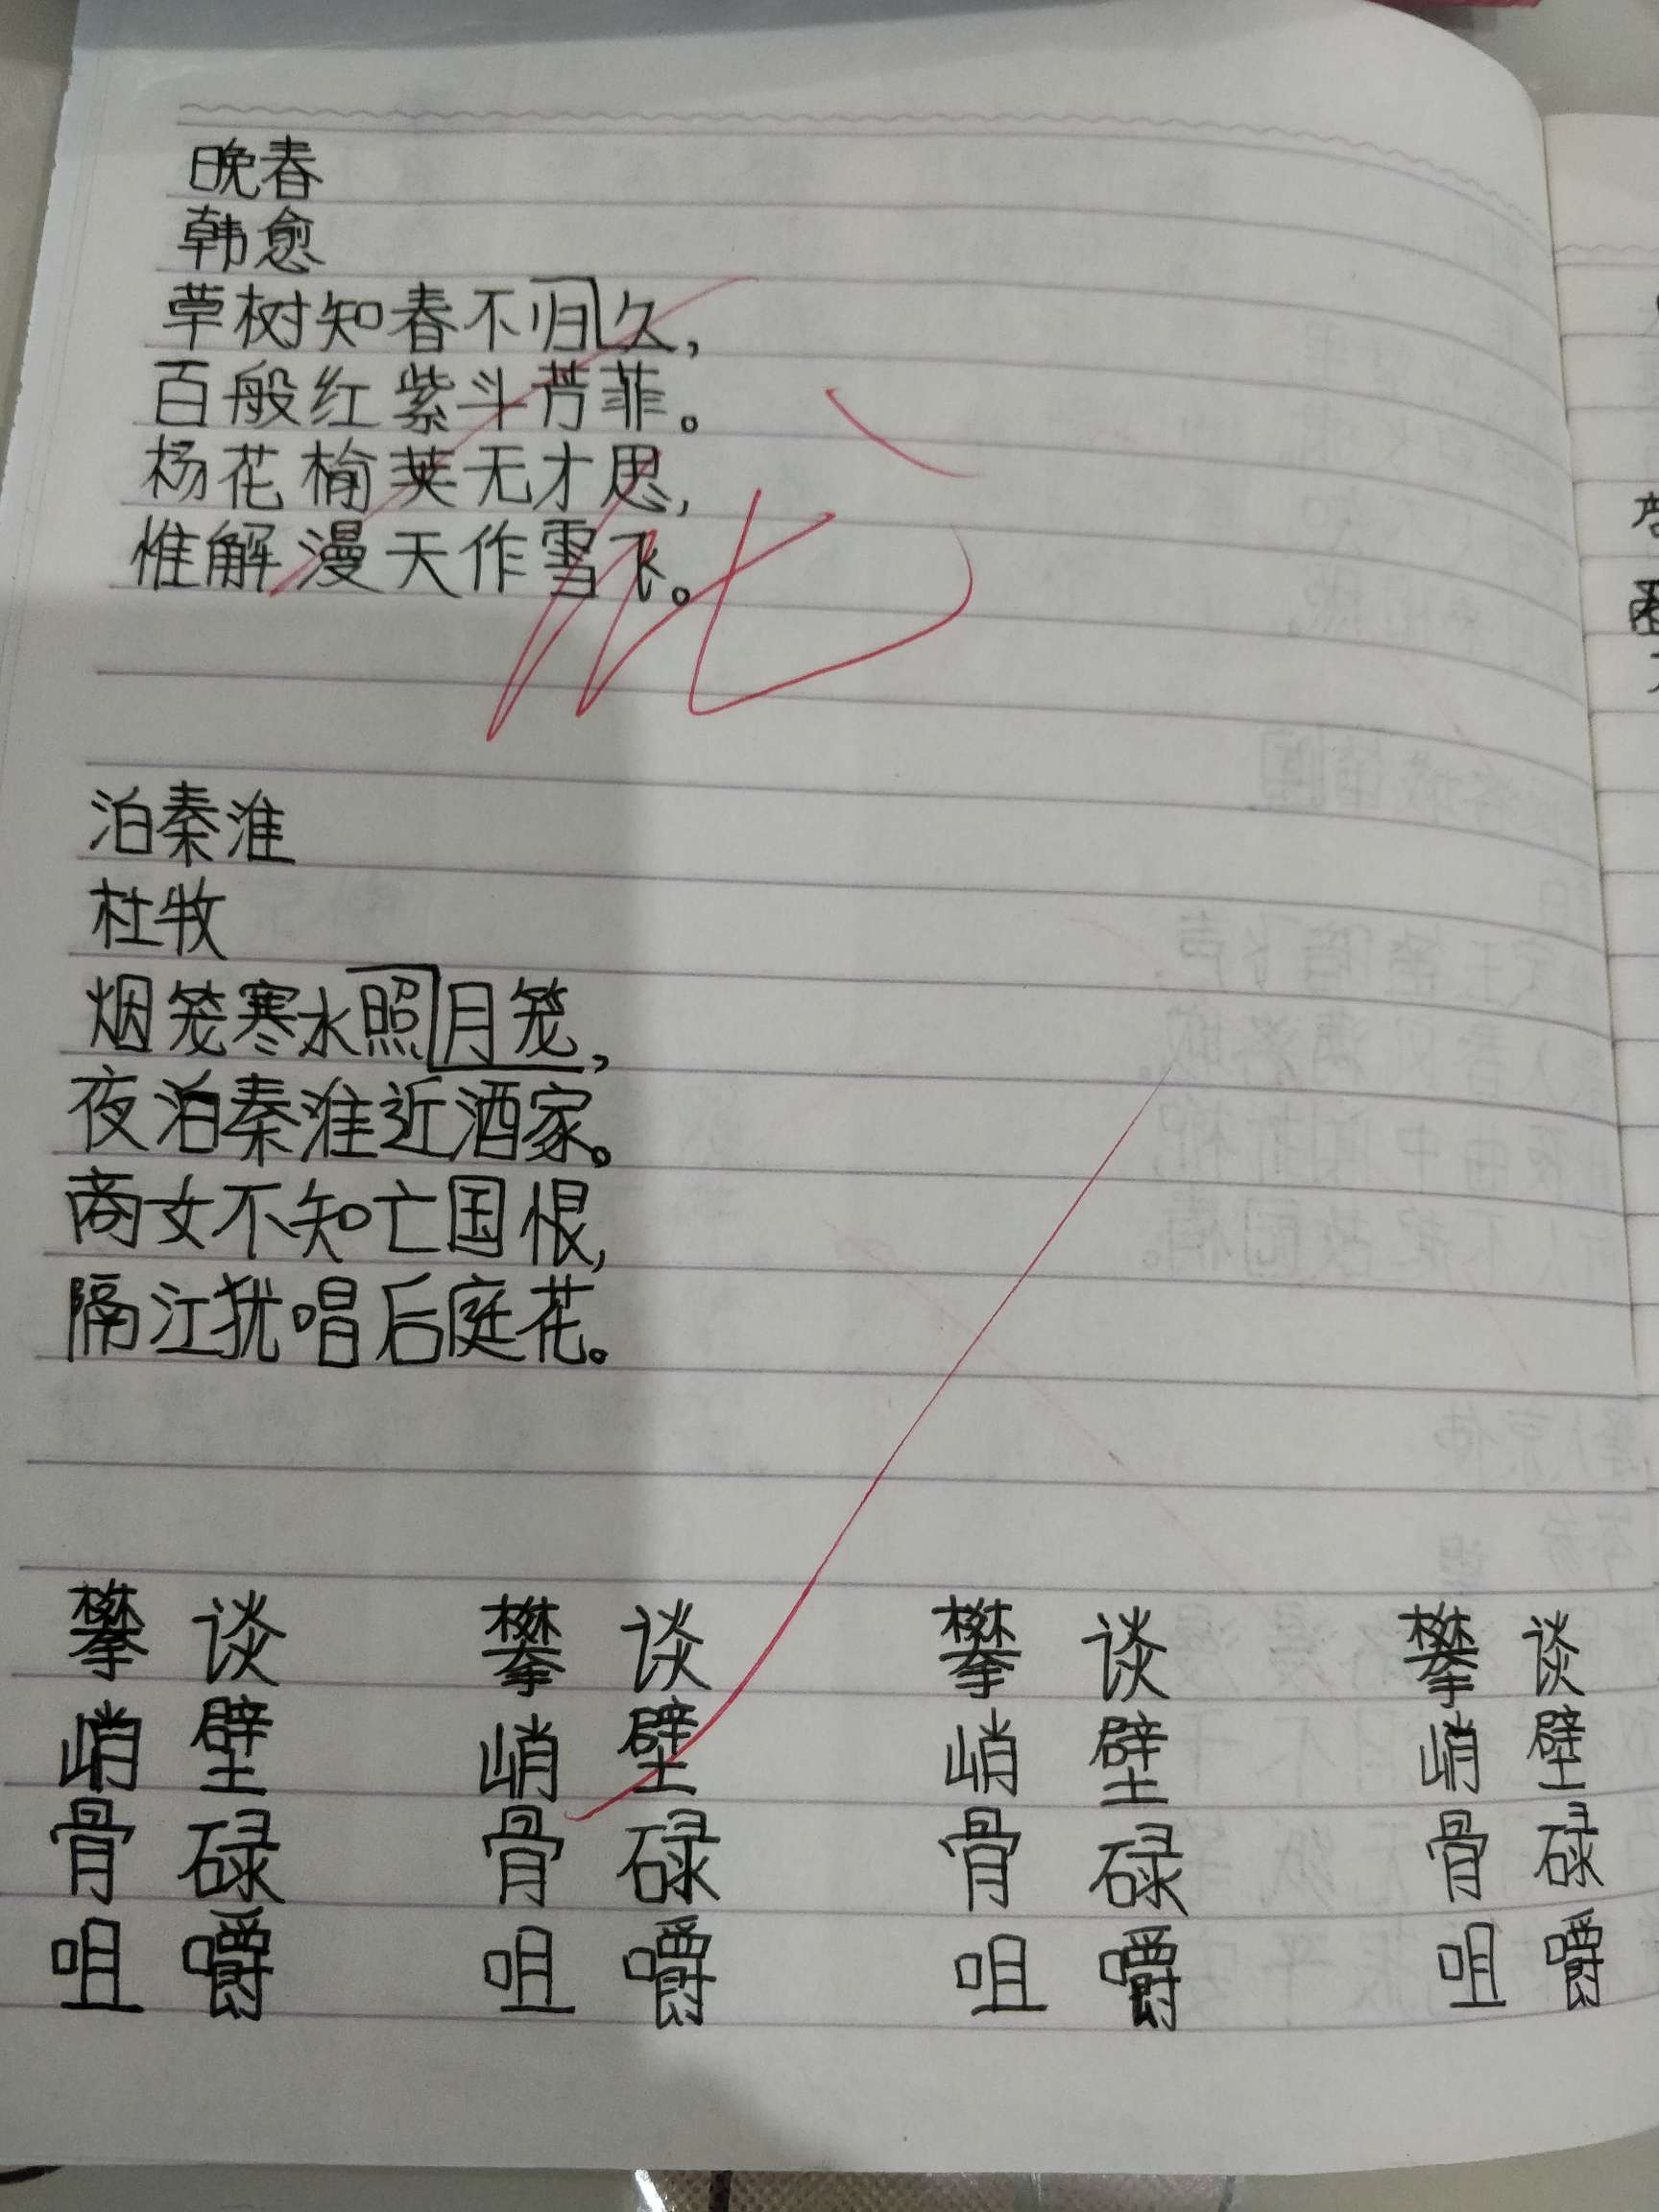 晚春
韩愈
草树知春不归久,
百般红紫斗芳菲。
杨花榆荚无才思,
惟解漫天作雪飞。
泊秦淮
杜牧
烟笼寒水照月笼,
夜泊秦淮近酒家。
商女不知亡国恨,
隔江犹唱后庭花。
攀谈 攀谈 攀谈 攀谈
峭壁 峭壁 峭壁 峭壁
骨碌 骨碌 骨碌 骨碌
咀嚼 咀嚼 咀嚼 咀嚼